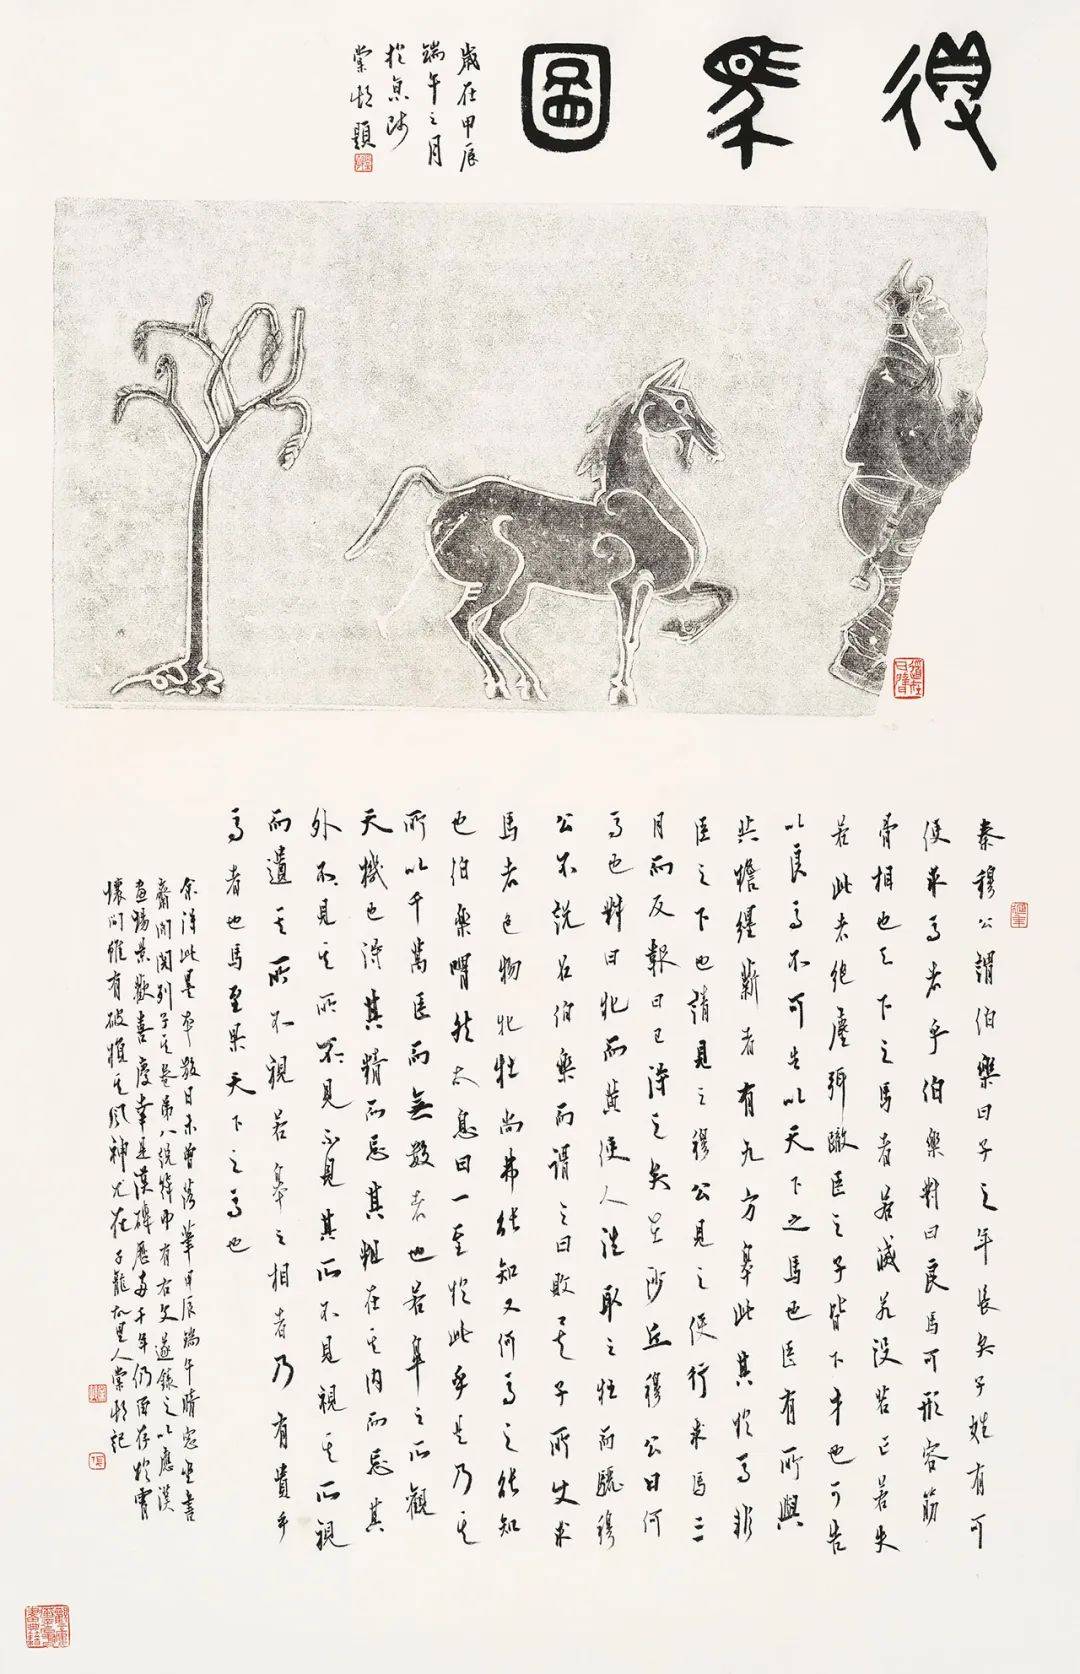 得馬圖
歲在甲辰
端午之月
於京師
題
秦穆公謂伯樂曰子之年長矣子姓有可
使求馬者乎伯樂對曰良馬可形容筋
骨相也天下之馬者若滅若沒若亡若失
若此者絕塵弭轍臣之子皆下才也可告
以良馬不可告以天下之馬也臣有所與
共擔纆薪者有九方皋此其於馬非
臣之下也請見之穆公見之使行求馬三
月而反報曰已得之矣在沙丘穆公曰何
馬也對曰牝而黃使人往取之牡而驪穆
公不說召伯樂而謂之曰敗矣子所使求
馬者色物牝牡尚弗能知又何馬之能知
也伯樂喟然太息曰一至於此乎是乃其
所以千萬臣而無數者也若皋之所觀
天機也得其精而忘其粗在其內而忘其
外不見其所不見不見其所不見視其所視
而遺其所不視若皋之相者乃有貴乎
馬者也馬至果天下之馬也
余得此墨本數日未曾落筆甲辰端午晴窗坐書
齋閒閱列子其卷第八說符中有右文遂錄之以應漢
畫場景歡喜慶幸是漢磚歷兩千年仍面存於
懷間雖有破損其風神尤在子龍人記